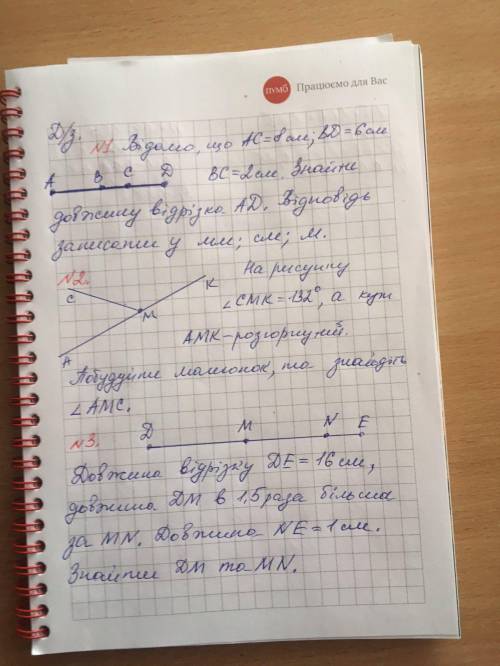 ПУМБ Працюємо для Вас
Д/з.
№1. Відомо, що AC=8см; BD=6см
A B C D
BC=2см. Знайти
довжину відрізка AD. Відповідь
записати у мм; см; м.
№2.
C K M A
На рисунку
∠CMK=132°, а кут
AMK-розгорнутий.
Побудуйте малюнок, та знайдіть
∠AMC.
№3.
D M N E
Довжина відрізку DE=16см,
довжина DM в 1,5 раза більша
за MN. Довжина NE=1см.
Знайти DM та MN.